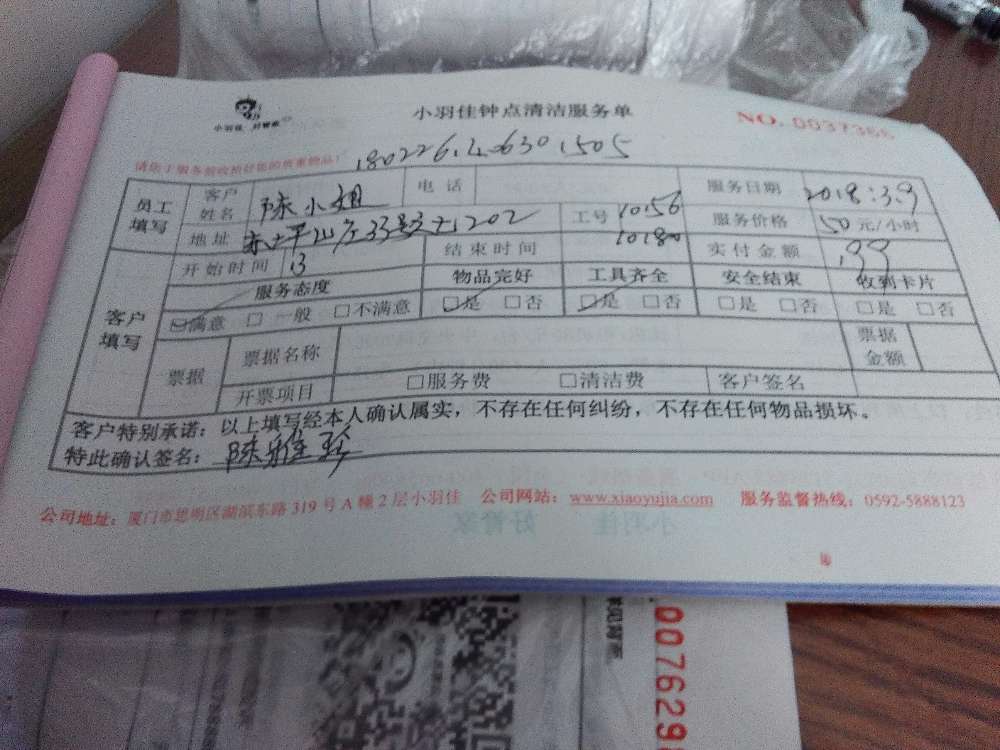 小羽佳 好管家
小羽佳钟点清洁服务单
NO. 0037366
员工填写 客户姓名 陈小姐 电话 服务日期 2018:3.9
地址 工号 10156 服务价格 50元/小时
10180
客户填写 开始时间 13 结束时间 实付金额
服务态度 物品完好 工具齐全 安全结束 收到卡片
满意 一般 不满意 是 否 是 否 是 否 是 否
票据 票据名称 票据金额
开票项目 服务费 清洁费 客户签名
客户特别承诺：以上填写经本人确认属实，不存在任何纠纷，不存在任何物品损坏。
特此确认签名：陈雅珍
公司地址：厦门市思明区湖滨东路319号A幢2层小羽佳 公司网站：www.xiaoyujia.com 服务监督热线：0592-5888123